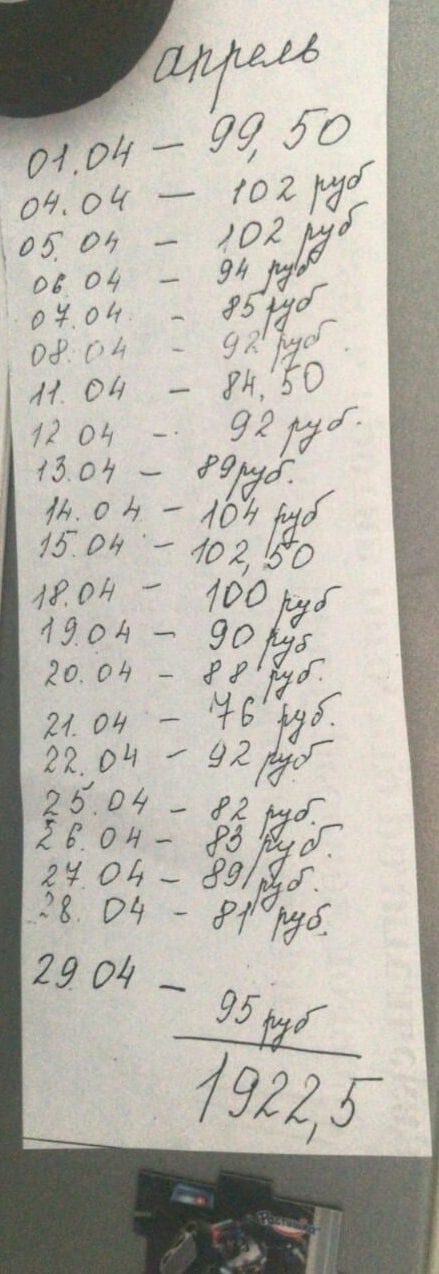 апрель
01.04 – 99,50
04.04 – 102 руб
05.04 – 102 руб
06.04 – 94 руб
07.04. - 85 руб
08.04 - 92 руб.
11.04 – 84,50
12 04 -. 92 руб.
13.04 – 89 руб.
14.04 – 104 руб
15.04 – 102,50
18.04 – 100 руб
19.04 – 90 руб
20.04 – 88 руб.
21.04 – 76 руб.
22.04 – 92 руб
25.04 – 82 руб.
26.04 – 83 руб.
27.04 – 89 руб.
28.04 – 81 руб.
29.04 – 95 руб
1922,5